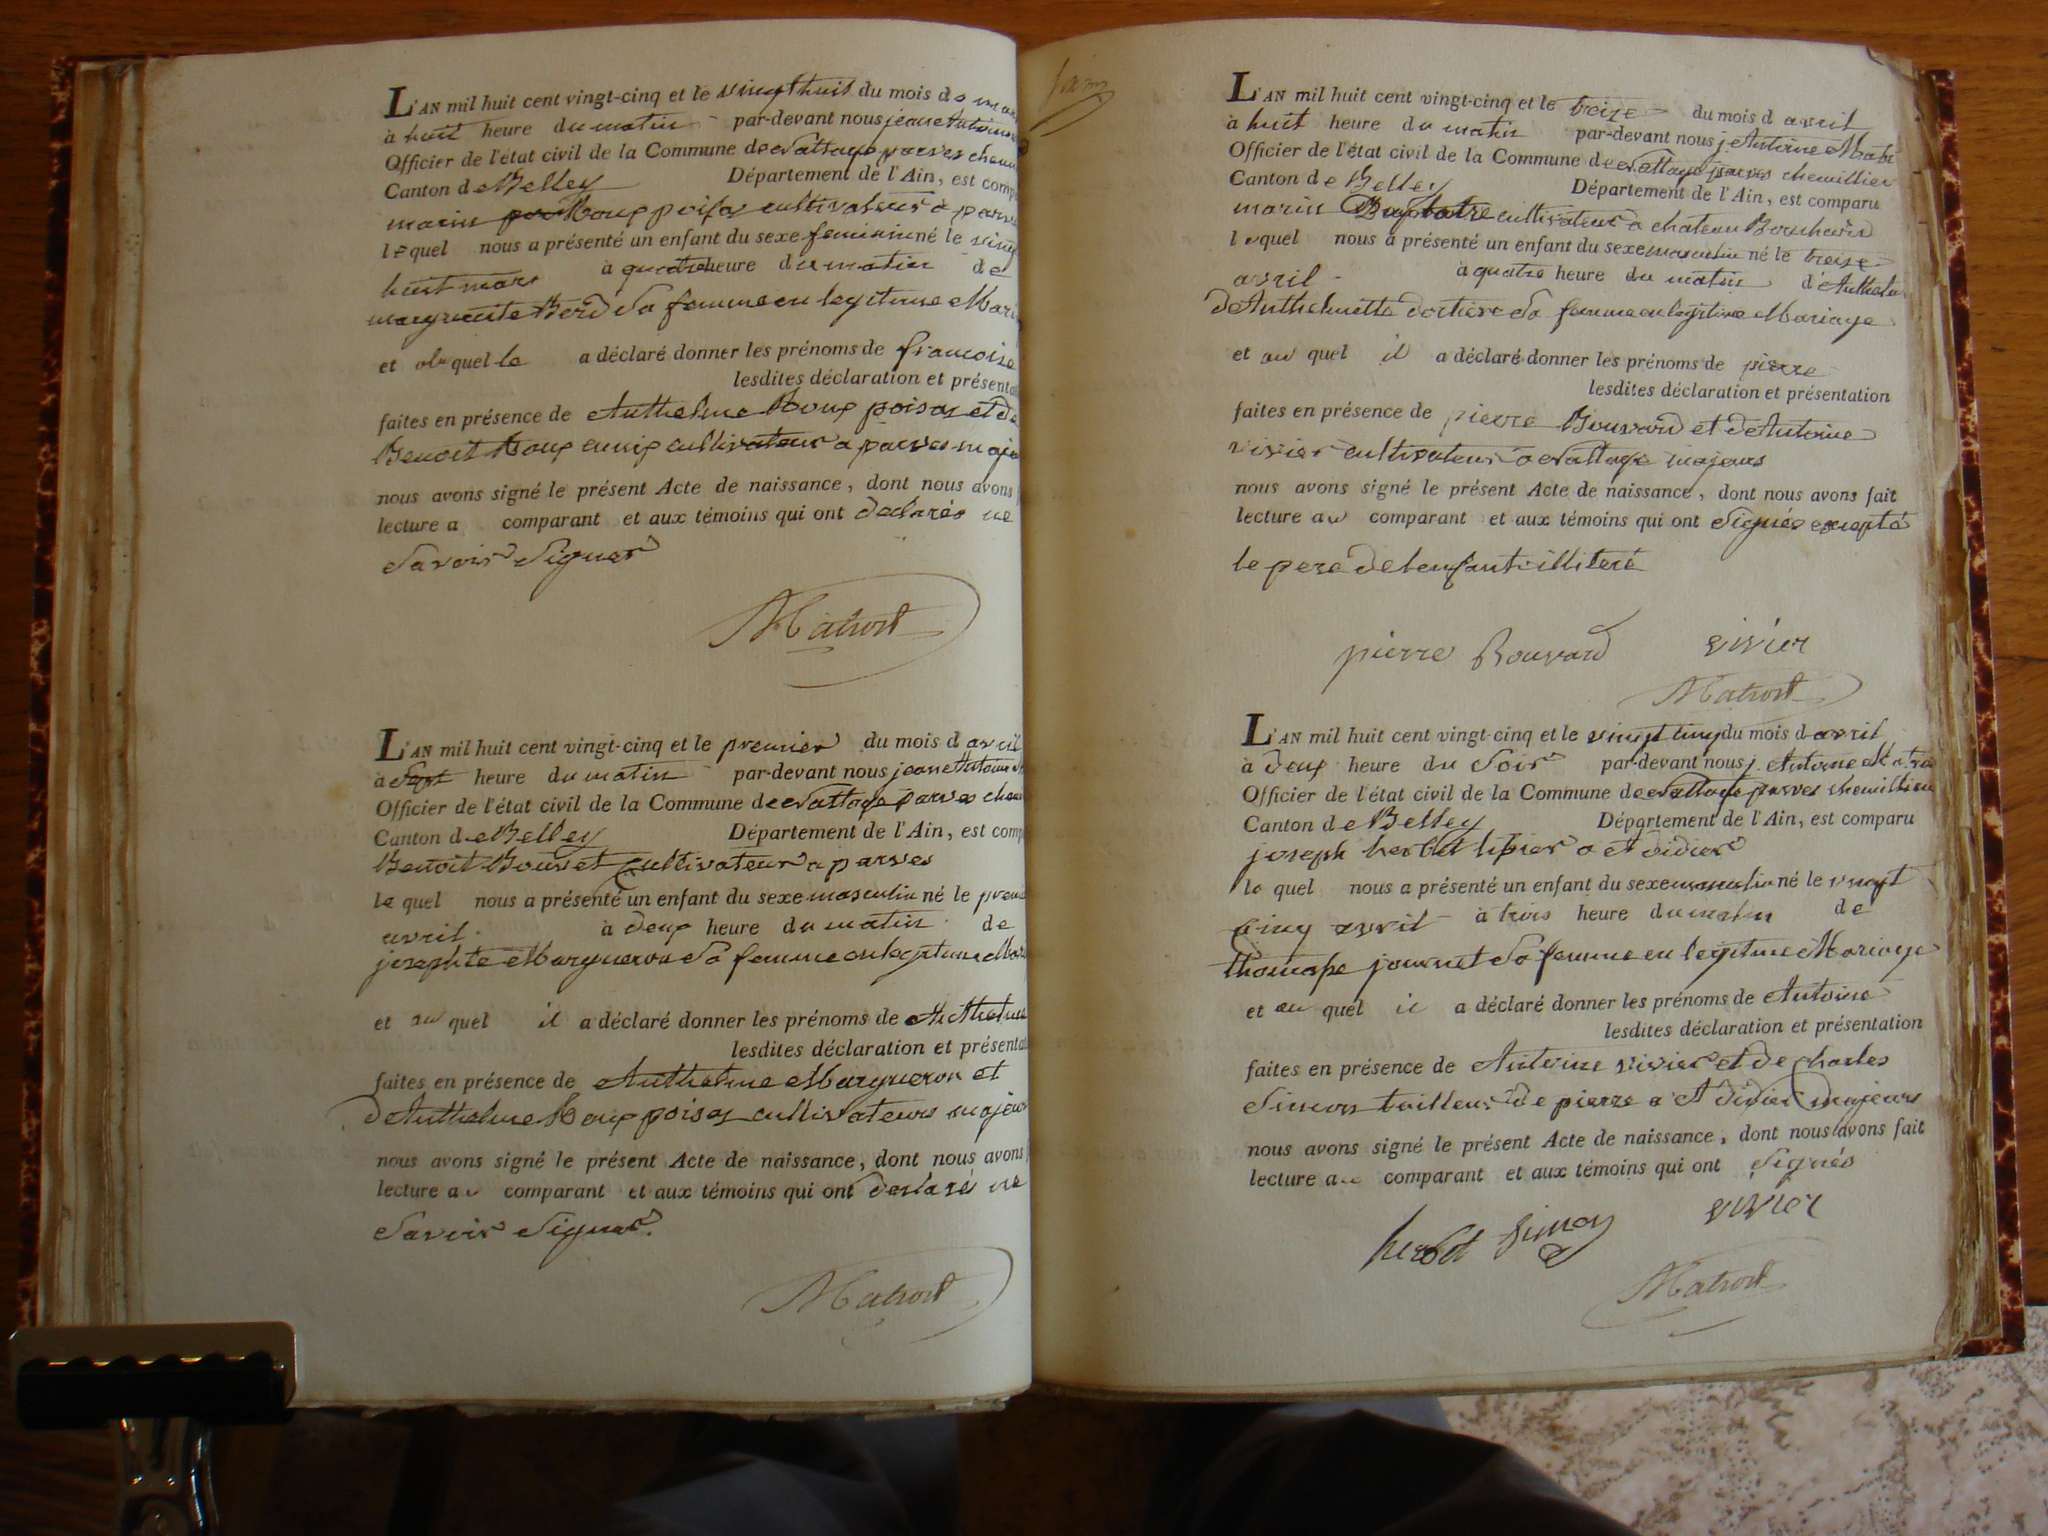 L'AN mil huit cent vingt-cinq et le vingt huit du mois de mar
à huit heure du matin par-devant nous jean Antoine
Officier de l'état civil de la Commune de Nattage parves
Canton de Belley Département de l'Ain, est comp
marin Roux poisat cultivateur a parve
lequel nous a présenté un enfant du sexe feminin né le vingt
huit mars à quatre heure du matin de
marguerite sa femme en legitime Mari
et a la quelle a déclaré donner les prénoms de francoise
lesdites déclaration et présenta
faites en présence de Anthelme Roux poisat et de
Benoit Roux cultivateur a parves maje
nous avons signé le présent Acte de naissance, dont nous avons
lecture a comparant et aux témoins qui ont declarés ne
Savoir Signer
Matrod
L'AN mil huit cent vingt-cinq et le premier du mois d avril
à Sept heure du matin par-devant nous jean Antoine
Officier de l'état civil de la Commune de Nattage parves
Canton de Belley Département de l'Ain, est comp
Benoit Bouvet cultivateur a parves
lequel nous a présenté un enfant du sexe masculin né le premi
avril à deux heure du matin de
josephte Margueron Sa femme en legitime Mar
et au quel il a déclaré donner les prénoms de Anthelme
lesdites déclaration et présenta
faites en présence de Anthelme Margueron et
d'Anthelme Roux poisat cultivateurs majeur
nous avons signé le présent Acte de naissance, dont nous avons
lecture au comparant et aux témoins qui ont declaré ne
Savoir Signer.
Matrod
L'AN mil huit cent vingt-cinq et le treize du mois d avril
à huit heure du matin par-devant nous j Antoine Mat
Officier de l'état civil de la Commune de Nattage parves chemillieu
Canton de Belley Département de l'Ain, est comparu
marin cultivateur a chateau Bouchard
lequel nous a présenté un enfant du sexe masculin né le treize
avril à quatre heure du matin d'Anthelm
d'Anthelmette Sa femme en legitime Mariage
et au quel il a déclaré donner les prénoms de pierre
lesdites déclaration et présentation
faites en présence de pierre Bouvard et d'Antoine
vivier cultivateur a Nattage majeurs
nous avons signé le présent Acte de naissance, dont nous avons fait
lecture au comparant et aux témoins qui ont Signés excepté
le pere de lenfant illiteré
pierre Bouvard vivier
Matrod
L'AN mil huit cent vingt-cinq et le vingt cinq du mois d avril
à deux heure du Soir par-devant nous j. Antoine Matro
Officier de l'état civil de la Commune de Nattage parves chemillieu
Canton de Belley Département de l'Ain, est comparu
joseph herbet a St didier
le quel nous a présenté un enfant du sexe masculin né le vingt
cinq avril à trois heure du matin de
journet Sa femme en legitime Mariage
et au quel il a déclaré donner les prénoms de Antoine
lesdites déclaration et présentation
faites en présence de Antoine vivier et de charles
Simon tailleur de pierre a St didier majeurs
nous avons signé le présent Acte de naissance, dont nous avons fait
lecture au comparant et aux témoins qui ont Signés
herbet Simon vivier
Matrod